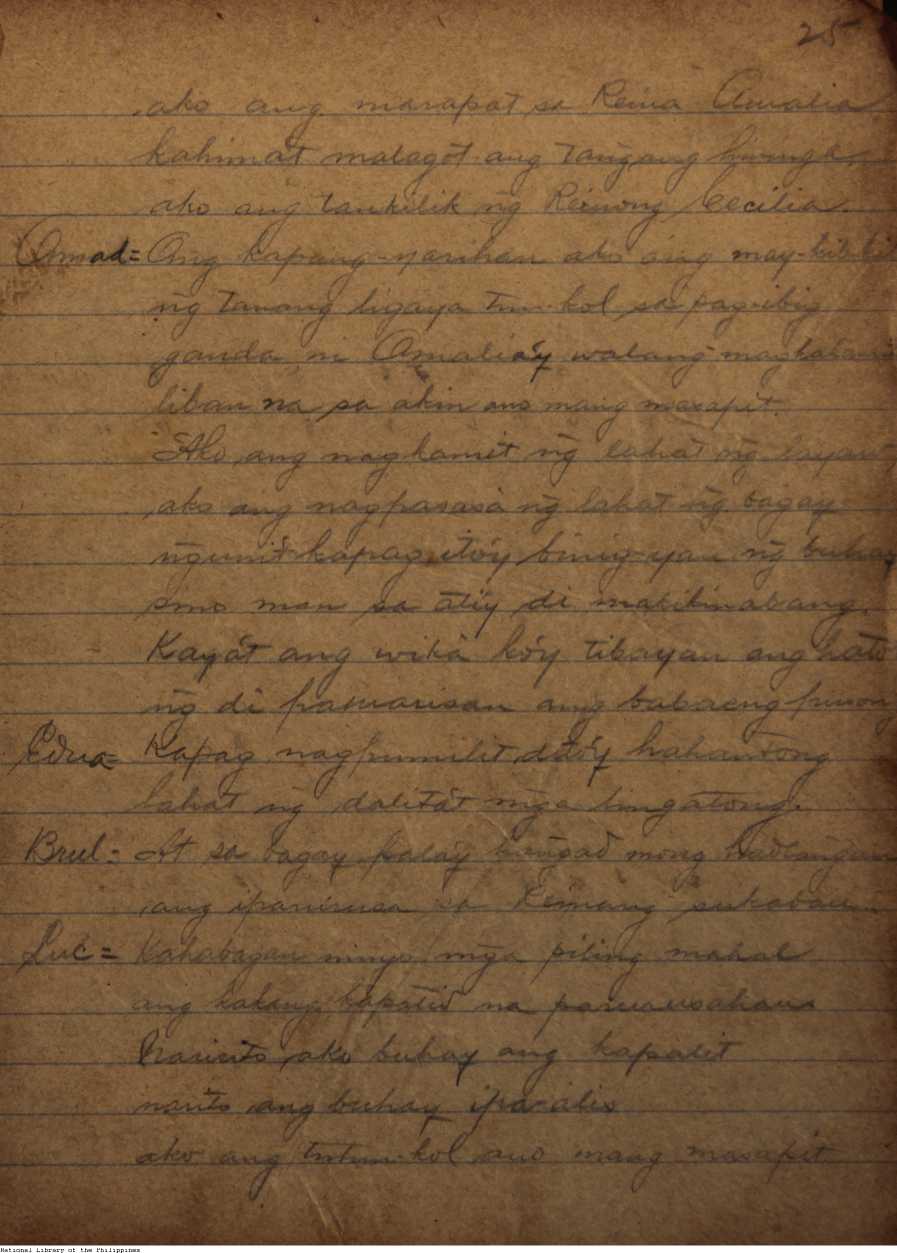 25
ako ang marapat sa Reina Amalia
kahimat malagot ang tangang hininga
ako ang tankilik ng Reinong Cecilia.
Amad= Ang kapang-yarihan ako ang may
ng tanang ligaya tun-kol sa pag-ibig
ganda ni Amalia'y walang
liban na sa akin ano mang masapit.
Ako ang nagkamit ng lahat ng
ako ang nagpasasa ng lahat ng bagay
ngunit kapag ito'y binig-yan ng buhay
sino man sa ati'y di makikinabang.
Kaya't ang wika ko'y tibayan ang hato
ng di pamarisan ang babaeng
Edua= Kapag nagpumilit dito'y hahantong
lahat ng dalita't mga lingatong.
Brul= At sa bagay pala'y mong
ang iparusa sa Reinang sukaban
Luc= Kahabagan ninyo mga piling mahal
ang kakang kapatid na parurusahan
Naririto ako buhay ang kapalit
narito ang buhay ipa-alis
ako ang tutun-kol ano mang masapit
National Library of the Philippines